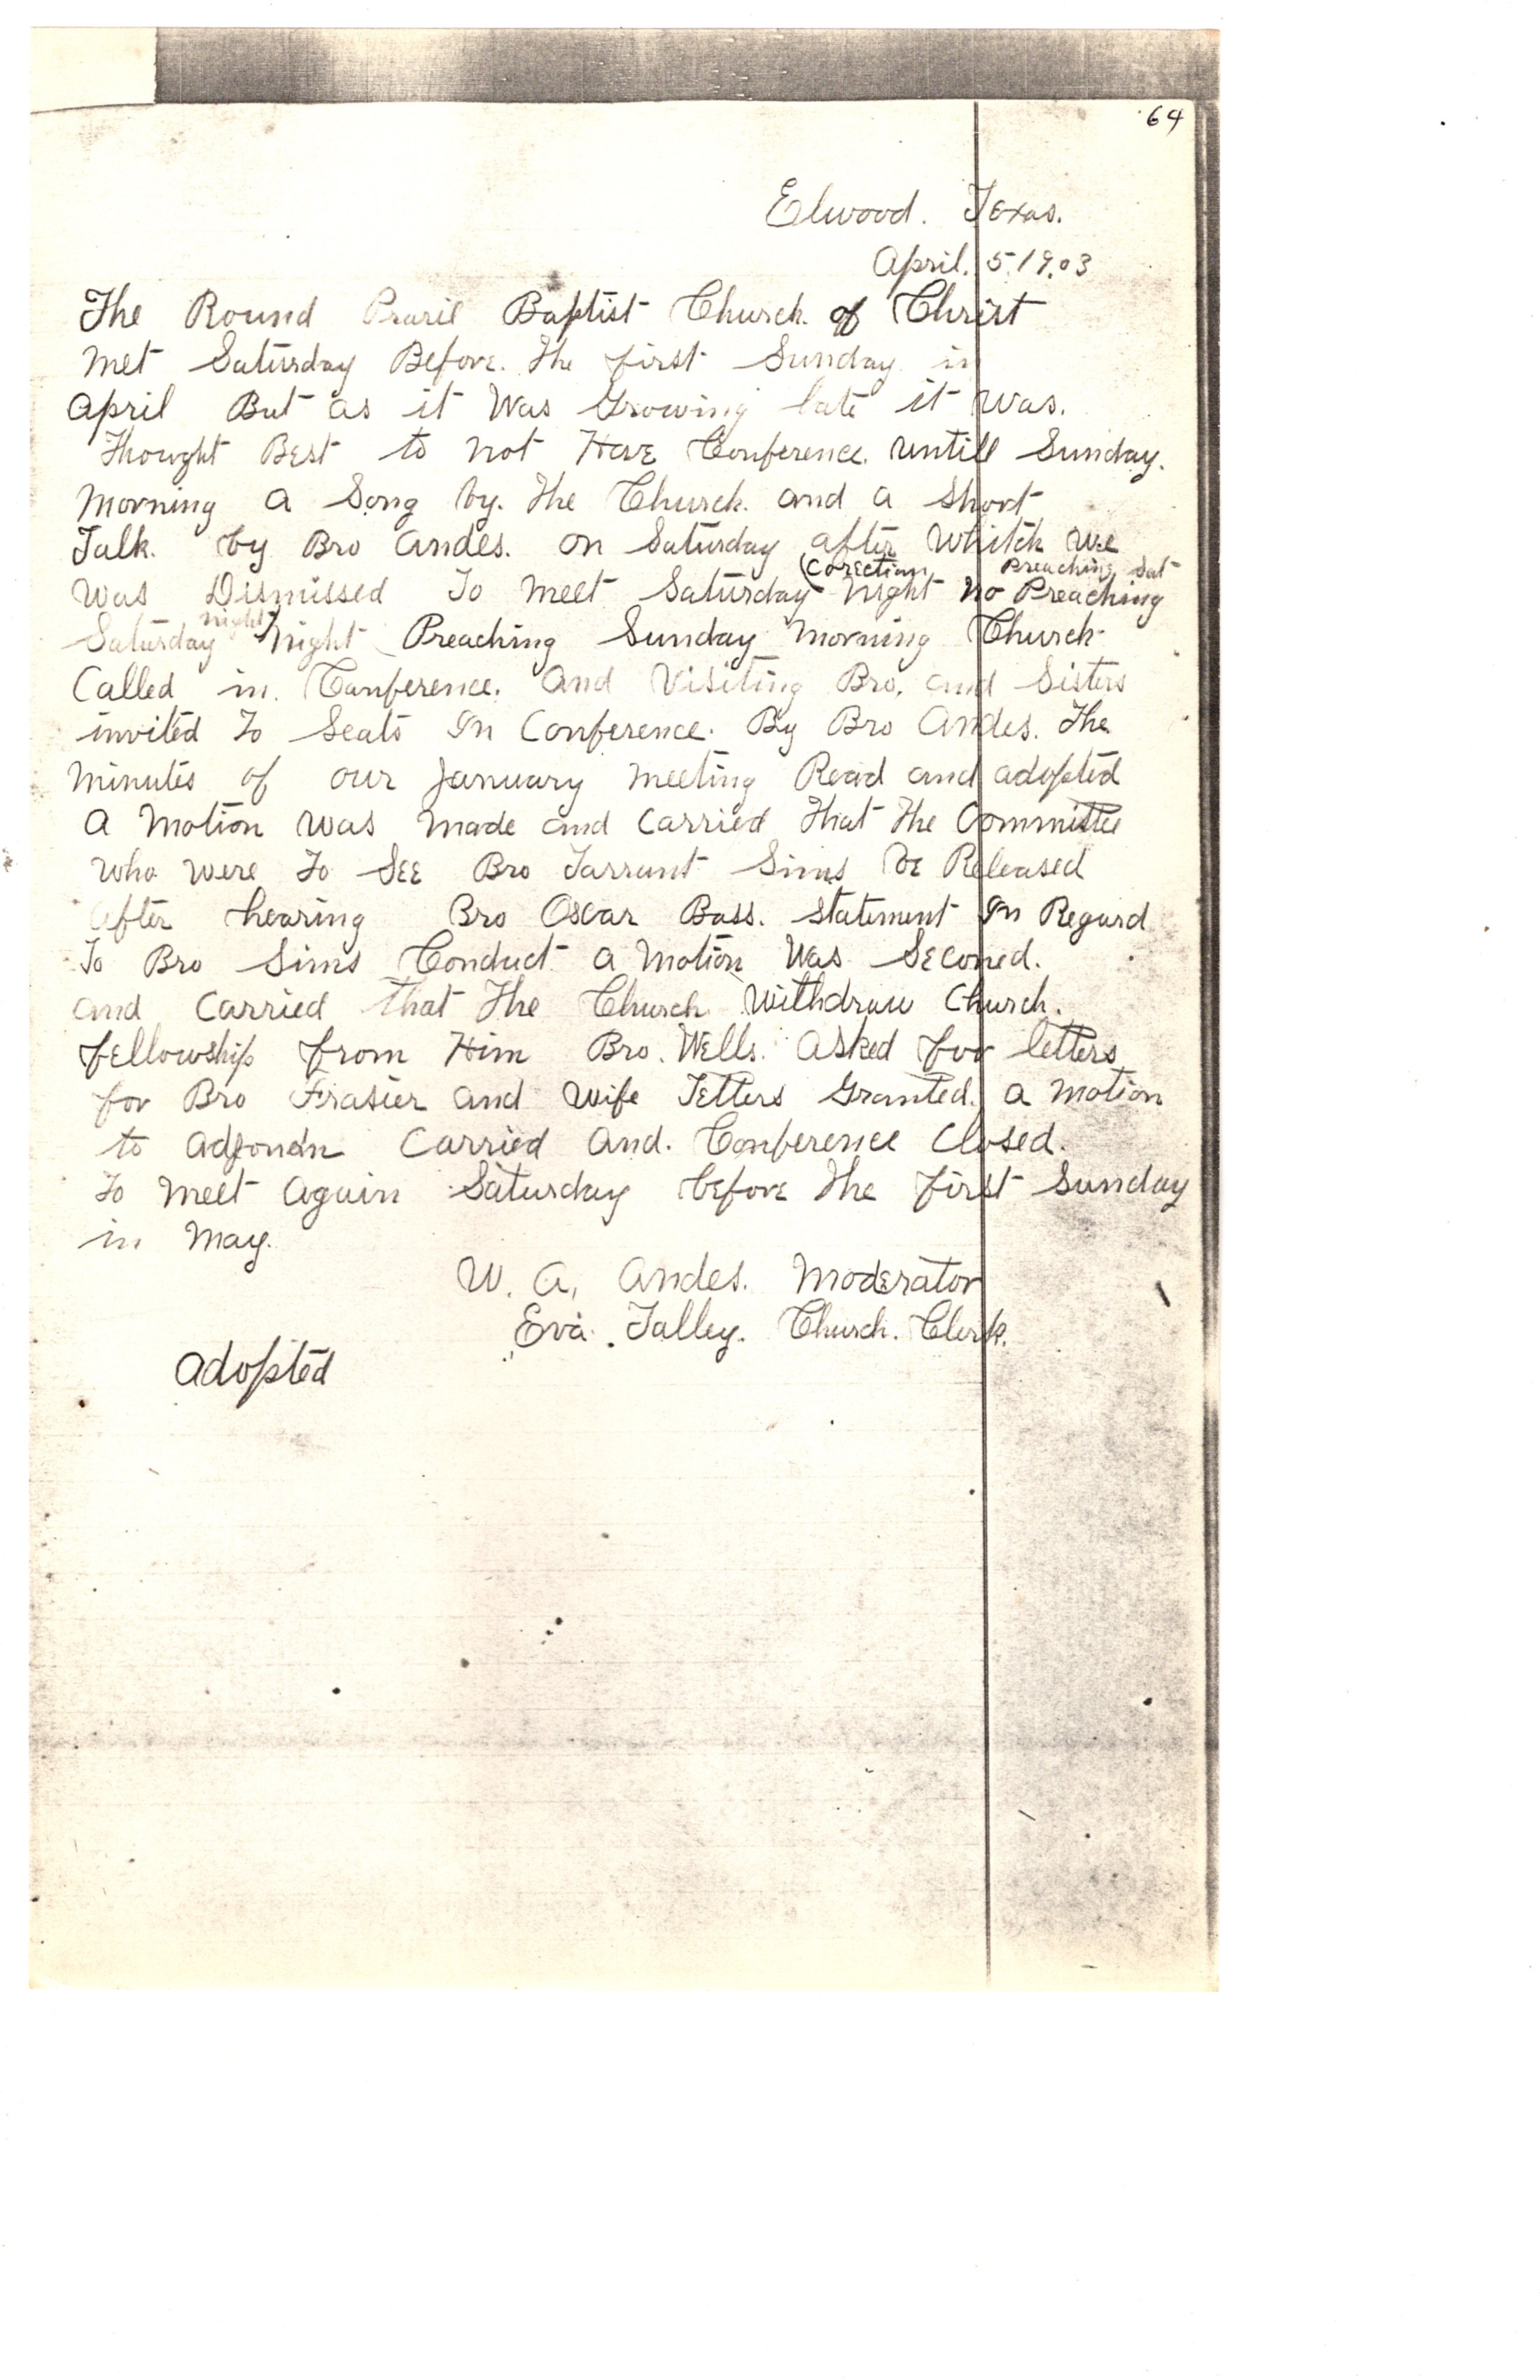 64
Elwood. Texas.
April. 5. 19.03
The Round Prarie Baptist Church of Christ
met Saturday Before. The first Sunday in
April But as it Was Growing late it was.
Thought Best to not Have Conference. untill Sunday.
morning a Song by. The Church. and a Short
Talk. by Bro Andes. on Saturday after Whitch we
(Corection Preaching Sat
was Dismissed To meet Saturday night no Preaching
night)
Saturday night Preaching Sunday morning Church
Called in. Conference. And Visiting Bro. and Sisters
invited To Seats In Conference. By Bro Andes. The
minutes of our January meeting Read and adopted
A motion was made and carried That The Committee
who were To SEE Bro Tarrant Sims be Released
after hearing Bro Oscar Bass. Statement In Regard
To Bro Sims Conduct a motion Was Seconed.
and Carried that The Church Withdraw Church.
fellowship from Him Bro. Wells. Asked for letters
for Bro Frasier and Wife Letters Granted. a motion
to Adjondn Carried And. Conference Closed.
To meet Again Saturday before The first Sunday
in May.
W. A. Andes. Moderator
Eva. Talley. Church. Clerk.
Adopted